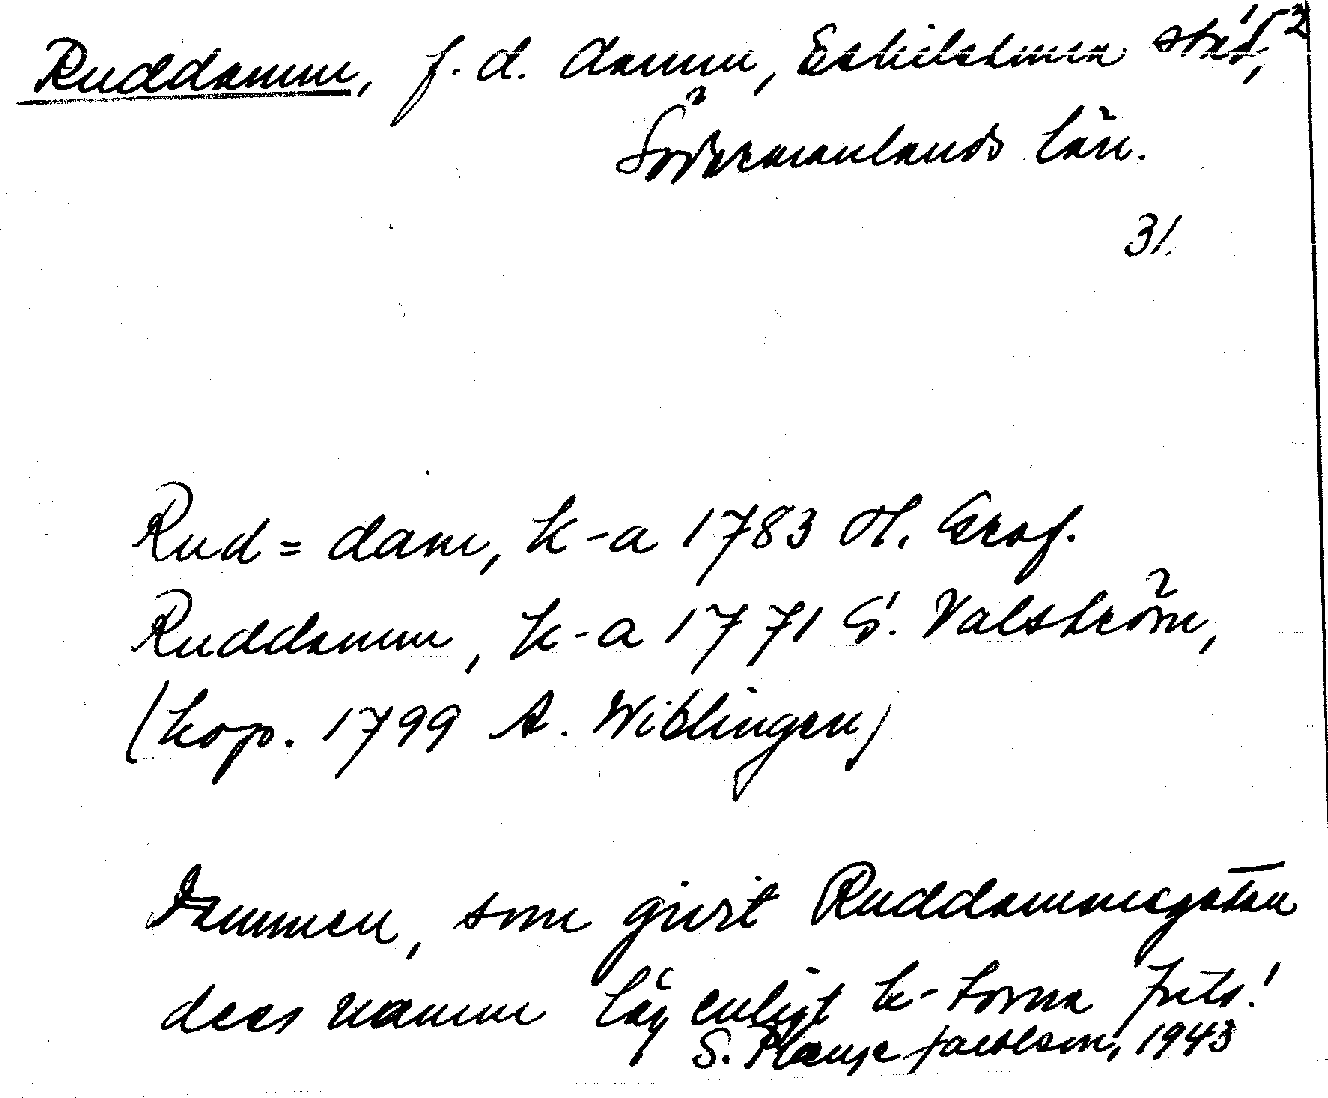 Ruddamm, f.d. damm, Eskilstuna stad, 52
Södermanlands län.
31.
Rud = dam, k-a 1783 H. Graf.
Ruddamm, k-a 1771 G. Valström,
(kop. 1799 A. Wiblingen)
Dammen, som givit Ruddammsgatan
dess namn låg enligt k-torna
S. Jacobson, 1943